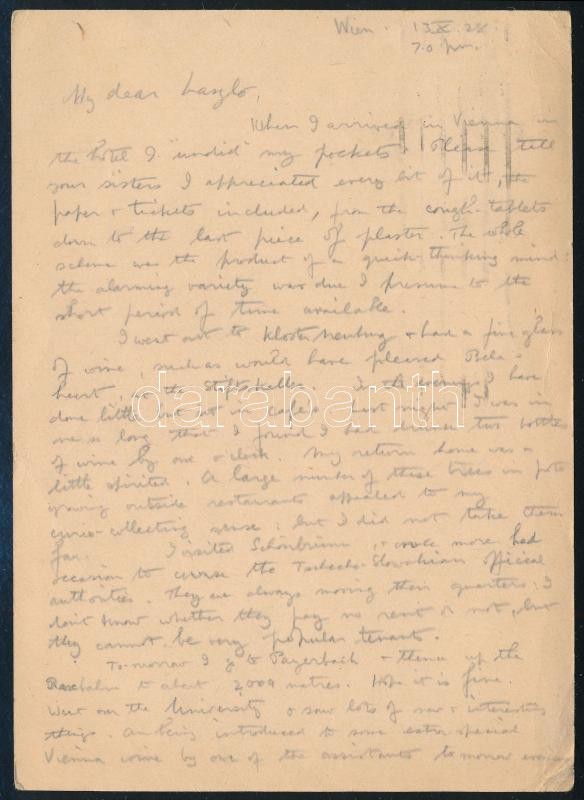 Wien. 13 X. 28.
7.0 pm.
My dear Laszlo,
When I arrived in Vienna in
the hotel I "undid" my pockets. Please tell
your sisters I appreciated every bit of it, the
paper + tickets included, from the cough-tablets
down to the last piece of plaster. The whole
scheme was the product of a quick-thinking mind:
the alarming variety was due I presume to the
short period of time available.
I went out to Klosterneuburg + had a fine glass
of wine, such as would have pleased Bela's
heart in the Stiftskeller. In the evenings I have
done little but sit in cafes. Last night I was in
one so long that I found I had drunk two bottles
of wine by one o'clock. My return home was a
little spirited. A large number of these trees in pots
growing outside restaurants appealed to my
curio-collecting sense: but I did not take them
far. I visited Schönbrunn, + once more had
occasion to curse the Tschecho-Slovakian official
authorities. They are always moving their quarters: I
don't know whether they pay no rent or not, but
they cannot be very popular tenants.
To-morrow I go to Payerbach + thence up the
Raxbahn to about 2,000 metres. Hope it is fine.
Went over the University + saw lots of new + interesting
things. Am being introduced to some extra special
Vienna wine by one of the assistants to-morrow evening
darabanth